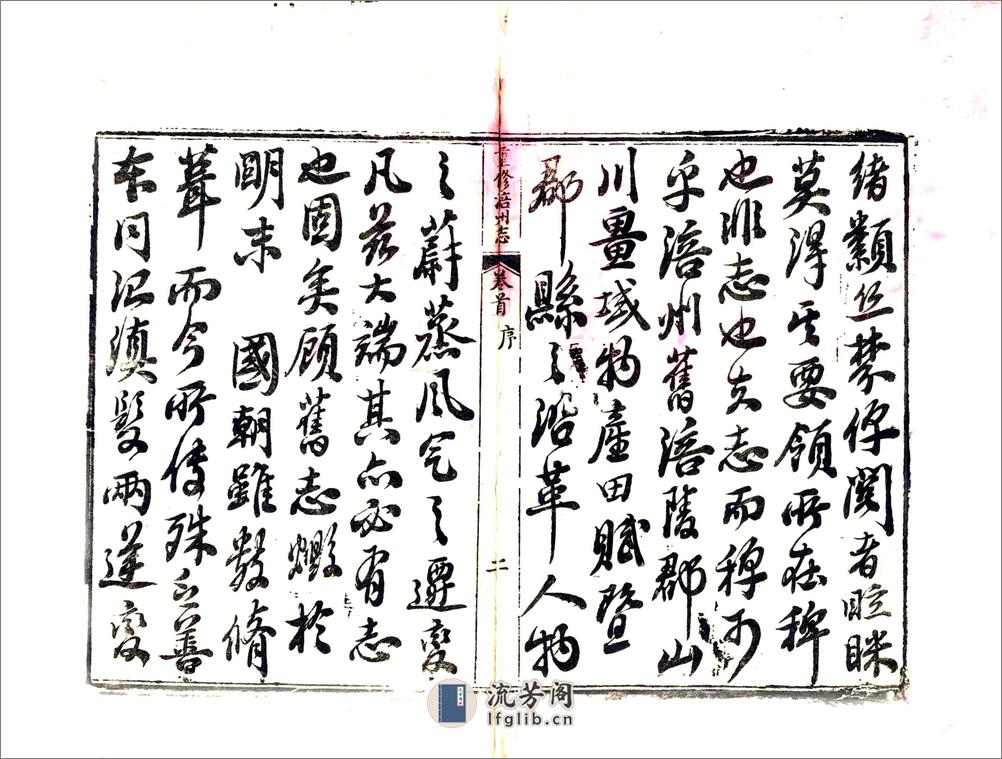 緒纇丝棼俾閱者眩眯
莫得其要領所在稗
也非志也夫志而稗可
乎涪州舊涪陵郡山
川畺域物產田賦暨
郡縣之沿革人物
重修涪州志 卷首 序 二
之蔚蒸風气之遷変
凡茲大端其亦必有志
也固矣顧舊志燬於
明末 國朝雖數脩
葺而今所傳殊乏善
本同治滇髮兩逆変
流芳阁
lfglib.cn